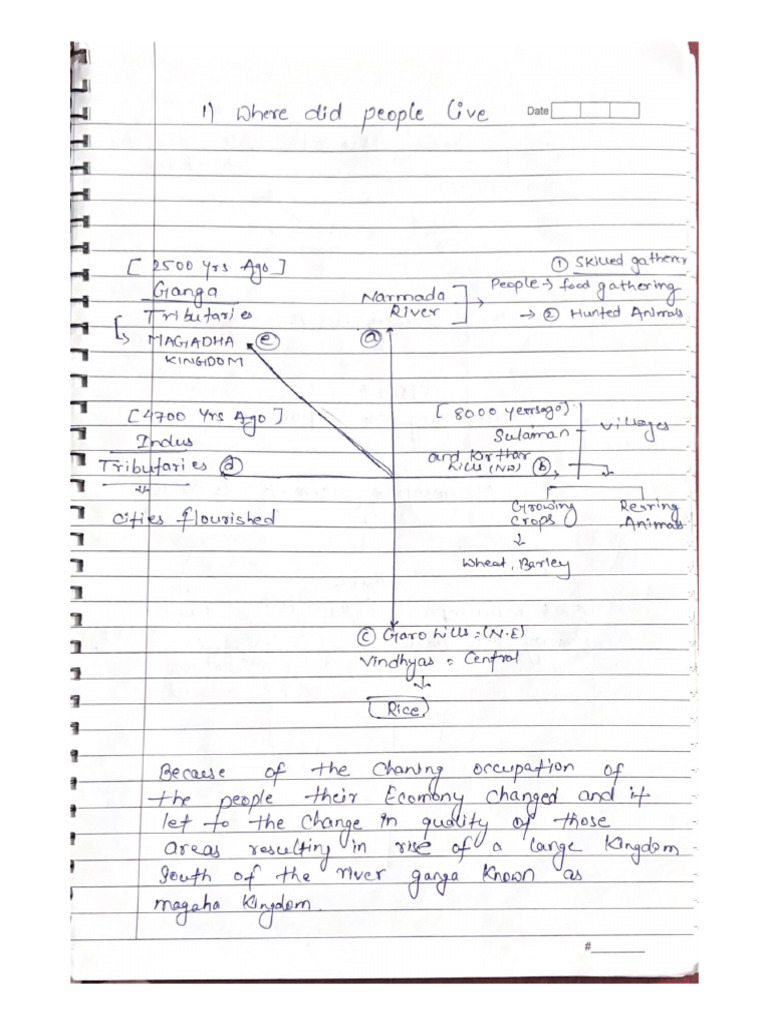 1) Where did people live
Date
[ 2500 yrs Ago ]
Ganga
Tributaries
MAGADHA (e)
KINGDOM
Narmada
River
(a)
People → food gathering
① Skilled gatherer
→ ② Hunted Animals
[ 4700 yrs Ago ]
Indus
Tributaries (d)
cities flourished
[ 8000 yearsago ]
Sulaiman
and kirthar
hills (NW) (b)
villages
Growing
crops
Wheat, Barley
Rerring
Animals
(c) Garo hills = (N.E)
Vindhyas = Central
Rice
Because of the Chaning occupation of
the people their Ecomony changed and it
let to the change in quality of those
areas resulting in rise of a large Kingdom
South of the river ganga known as
magaha Kingdom.
#